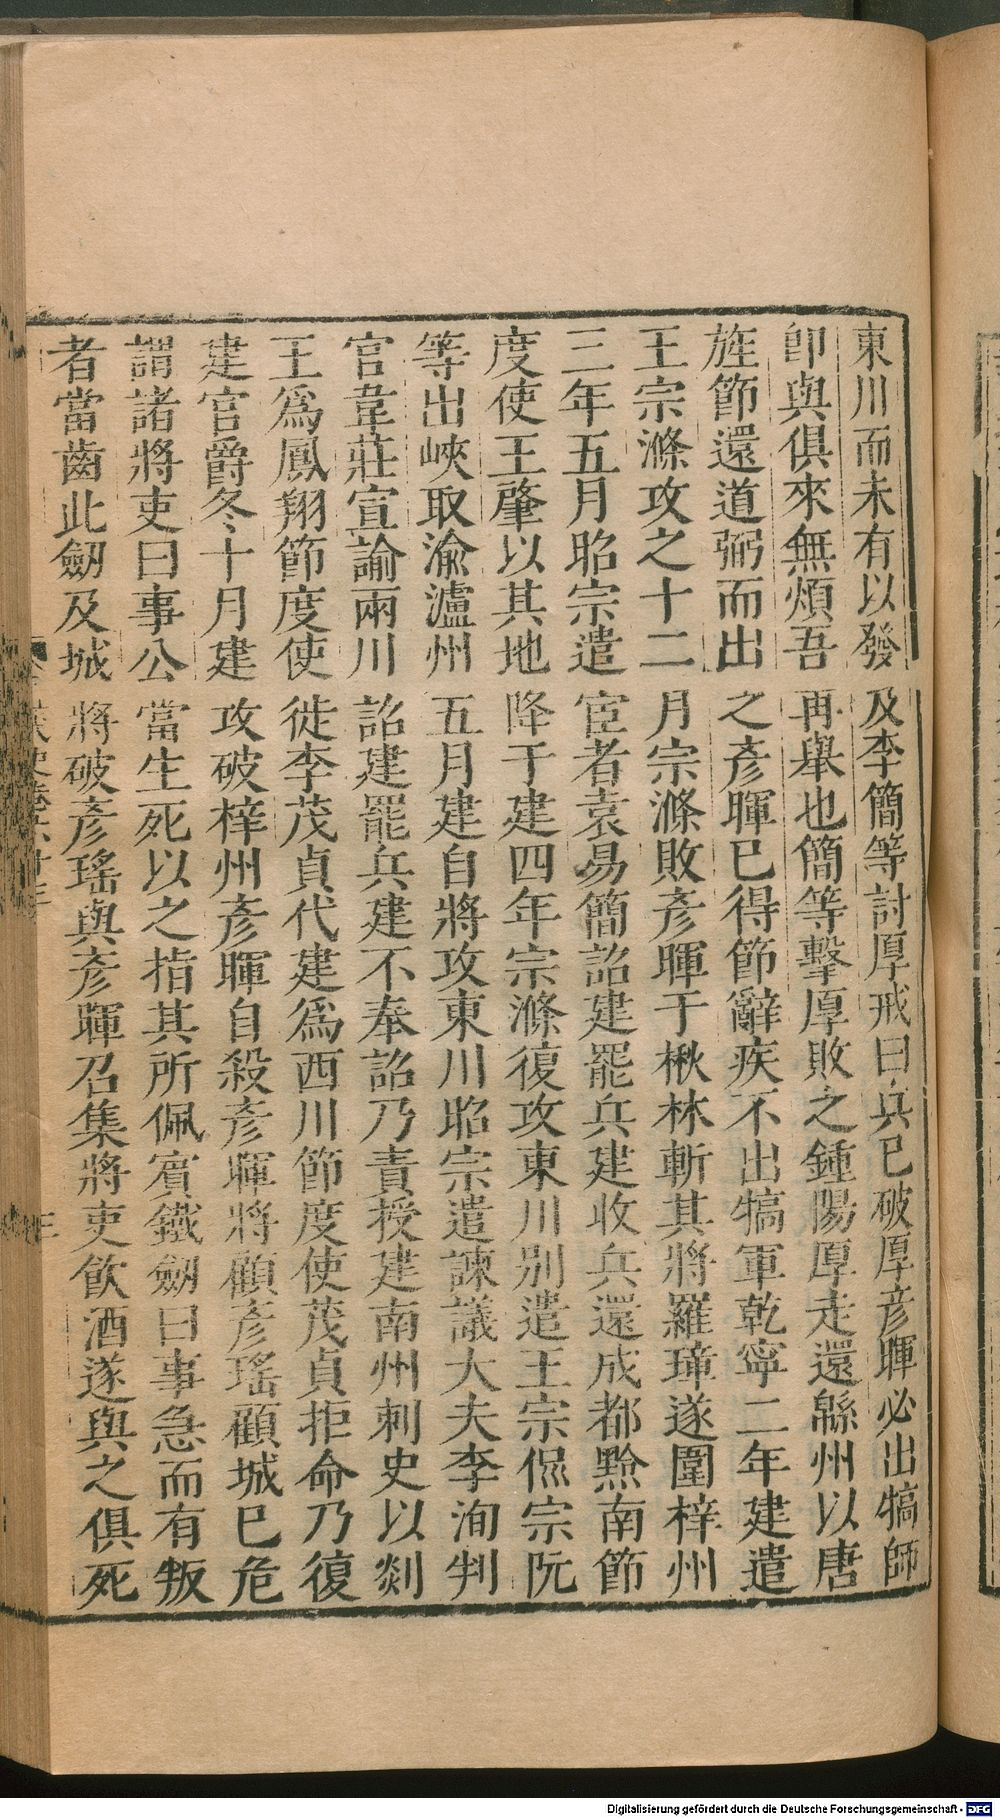 東川而未有以發及李簡等討厚戒曰兵已破厚彦暉必出犒師
即與俱來無煩吾再舉也簡等擊厚敗之鍾陽厚走還緜州以唐
旌節還道弼而出之彥暉已得節辭疾不出犒軍乾寧二年建遣
王宗滌攻之十二月宗滌敗彥暉于楸林斬其將羅璋遂圍梓州
三年五月昭宗遣宦者袁易簡詔建罷兵建收兵還成都黔南節
度使王肇以其地降于建四年宗滌復攻東川别遣王宗侃宗阮
等出峽取渝瀘州五月建自將攻東川昭宗遣諫議大夫李洵判
官韋莊宣諭兩川詔建罷兵建不奉詔乃責授建南州刺史以剡
王為鳳翔節度使徙李茂貞代建為西川節度使茂貞拒命乃復
建官爵冬十月建攻破梓州彥暉自殺彥暉將顧彥瑤顧城已危
謂諸將吏曰事公當生死以之指其所佩賓鐵劒曰事急而有叛
者當齒此劒及城將破彥瑤與彥暉召集將吏飲酒遂與之俱死
三
Digitalisierung gefördert durch die Deutsche Forschungsgemeinschaft - DFG